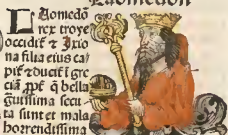 Laomedon
Laomedō
rex troye
occidit⁊ Ixio
na filia eius ca/
pit⁊ ducit̄ ī gre
ciā ppt̄ q̄ bella
guissima secu
ta sunt et mala
horrendissima